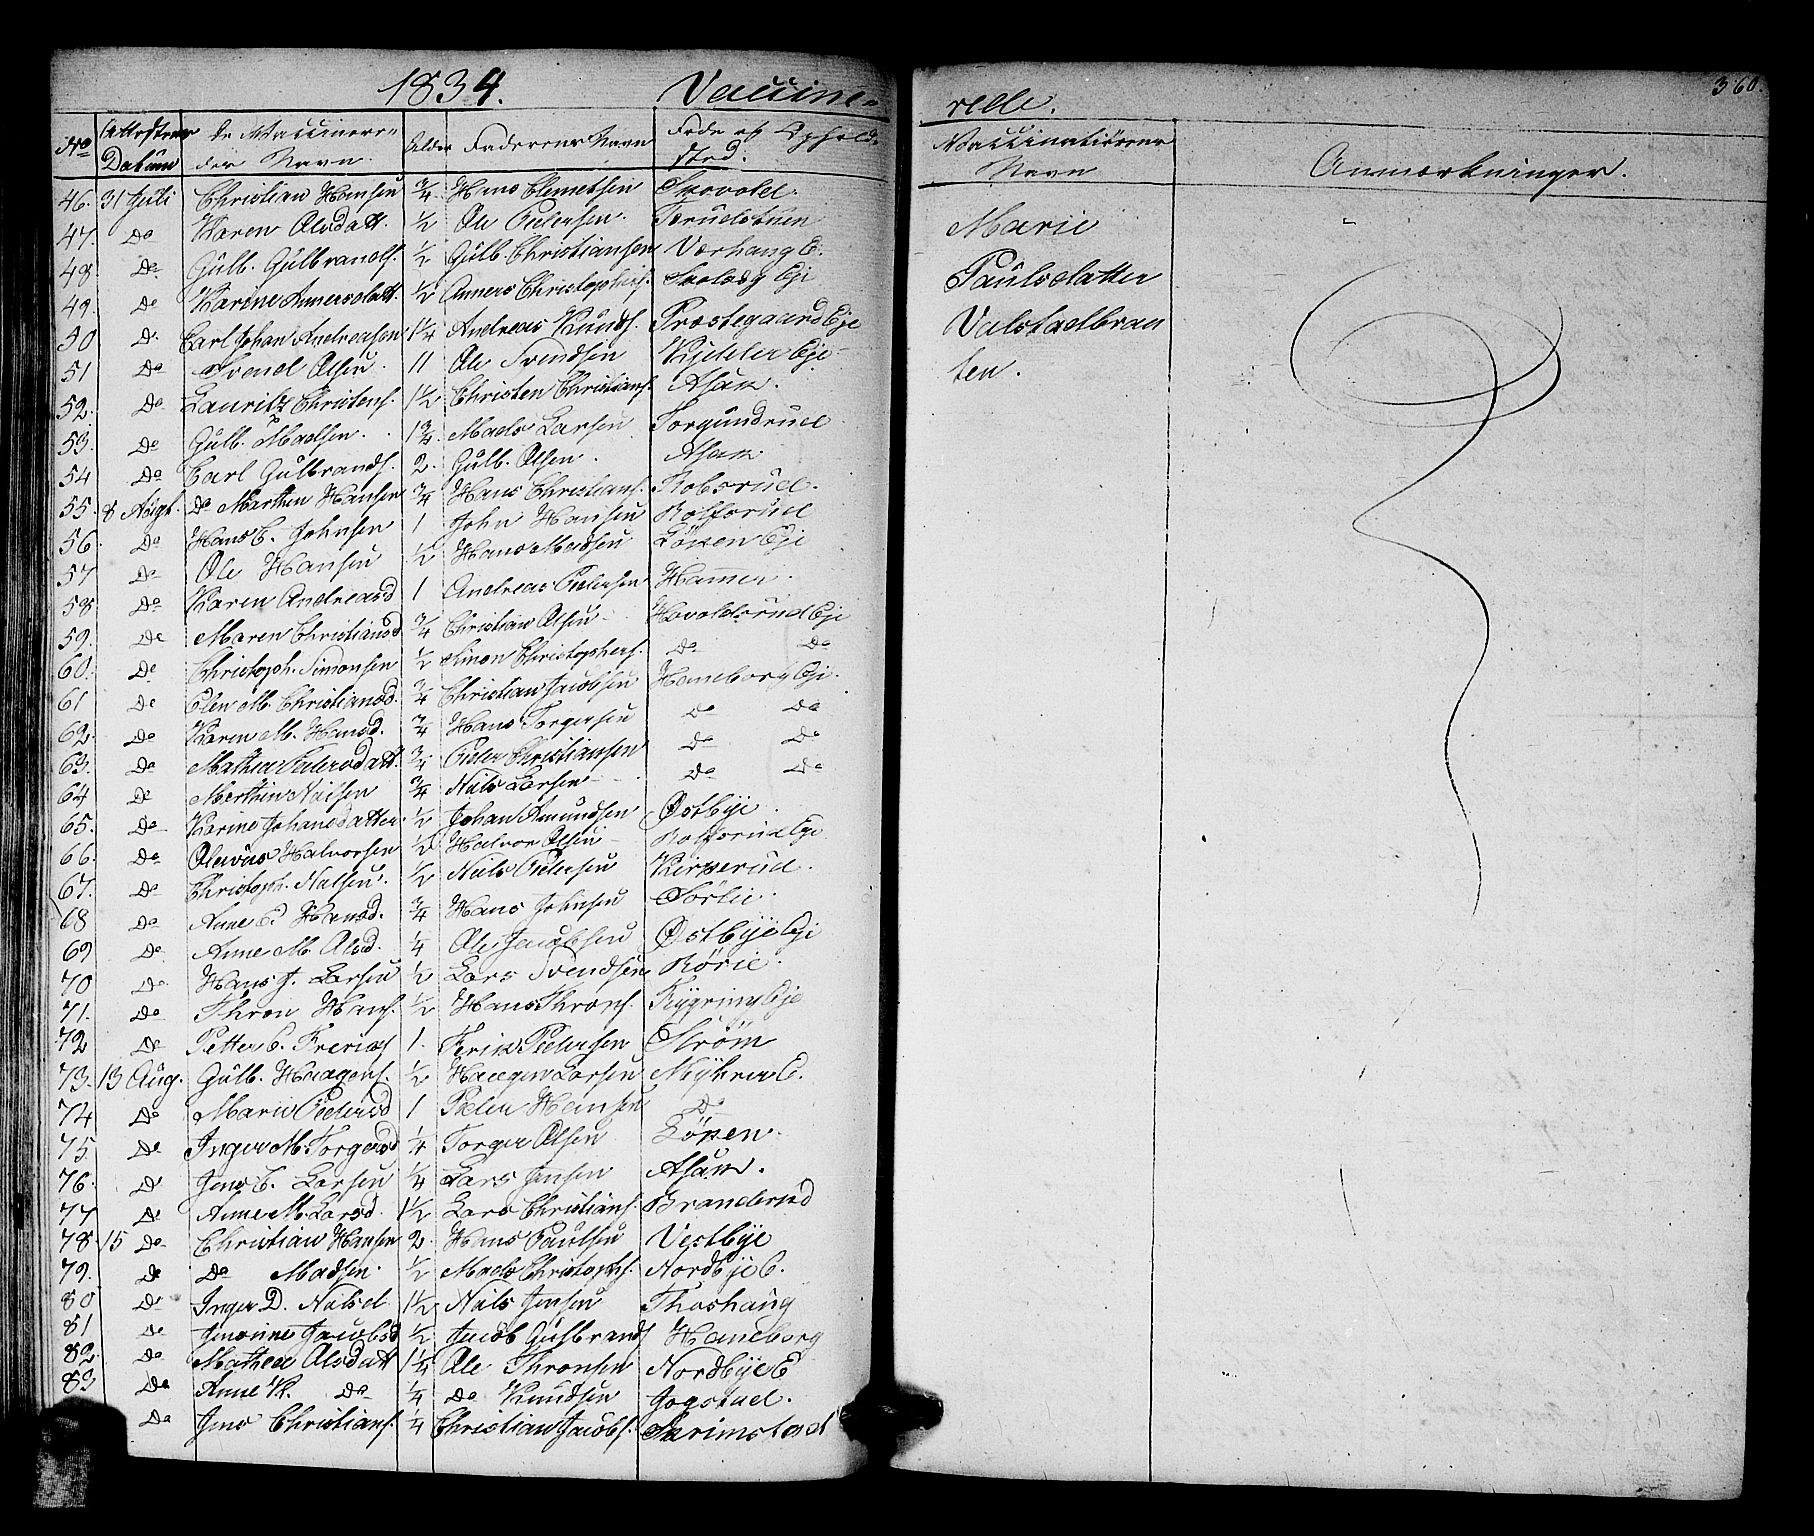 1834. Vaccine-
No Attestens Datum De Vaccinere- des Navn. Alder Faderens Navn Føde og Opholds- sted.
46. 31 Juli Christian Hansen 3/4 Hans Clemetsen Skovold.
47. Do Karen Olsdatt. 1/2 Ole Pedersen. Trudstuen
48. Do Gulb. Gulbrands. 1/2 Gulb. Christiansen Værhaug E.
49. Do Karine Anersdatt. 1/2 Anners Christophers. Eje
50 Do Carl Johan Andreasen 1 1/4 Andreas Knuds. Præstegaard Eje
51 Do Svend Olsen. 11 Ole Svendsen Kjelder Eje
52. Do Lauritz Christens. 1 1/2 Christen Christians. Asak.
53. Do Gulb. Madsen. 1 3/4 Mads Larsen Torgundrud
54 Do Carl Gulbrands. 2. Gulb. Olsen. Asak
55. 8 Augt. Do Marthin Hansen 3/4 Hans Christians. Robsrud.
56. Do Hans C. Johnsen 1 John Hansen Rolfsrud
57 Do Ole Hansen 1/2 Hans Madsen Löken Eje
58. Do Karen Andreasd 1 Andreas Pedersen Hammer.
59. Do Maren Christiansd 3/4 Christian Olsen Hovoldsrud Eje
60. Do Christoph. Simonsen 1/2 Simon Christophers. Do Do
61 Do Elen M. Christiansd. 3/4 Christian Jacobsen Haneborg Eje.
62. Do Karen M. Hansd. 3/4 Hans Torgersen Do Do
63. Do Mathea Pedersdatt. 3/4 Peder Christiansen Do Do
64 Do Marthin Nilsen 3/4 Nils Larsen Do Do
65. Do Karine Johansdatter 1/2 Johan Amundsen Østbye.
66. Do Olavus Halvorsen 1/2 Halvor Olsen Rolfsrud Eje
67. Do Christoph. Nilsen. 1/2 Nils Pedersen Kirkerud.
68 Do Anne C. Hansd. 3/4 Hans Johnsen Sörlie.
69 Do Anne M. Olsd. 1/4 Ole Jacobsen Østbye Eje
70 Do Hans J. Larsen 1/2 Lars Svendsen Rörie.
71. Do Thron Hans. 1/2 Hans Throns. Rygring Eje
72 Do Petter C. Frerics 1. Ferik Pedersen Ström
73. 13 Aug. Gulb. Haagens. 1/2 Haagen Larsen Mykrer E.
74 Do Marie Pedersd 1 Peder Hansen Do
75. Do Inger M. Torgersd 1/4 Torger Olsen Löken.
76. Do Jens C. Larsen 1/4 Lars Jensen Asak.
77 Do Anne M. Larsd. 1 1/2 Lars Christians. Branderud
78 15 Do Christian Hansen 2. Hans Paulsen Vestbye
79. Do Do Madsen. 1/2 Mads Christophs. Nordbye E.
80 Do Inger D. Nilsd. 1 1/2 Nils Jensen Thoshaug
81 Do Jensine Jacobsd 1/2 Jacob Gulbrands Haneborg
82. Do Mathea Olsdatt 1 1/4 Ole Thronsen Nordbye E
83 Do Anne K. Do 1/4 Do Knudsen Jogstad.
Do Jens Christians. 1/4 Christian Jacobs. Skrimstad
relle. 360.
Vaccinatiörens Navn Anmærkninger.
Marie
Paulsdatter
Valstadbraa
ten.